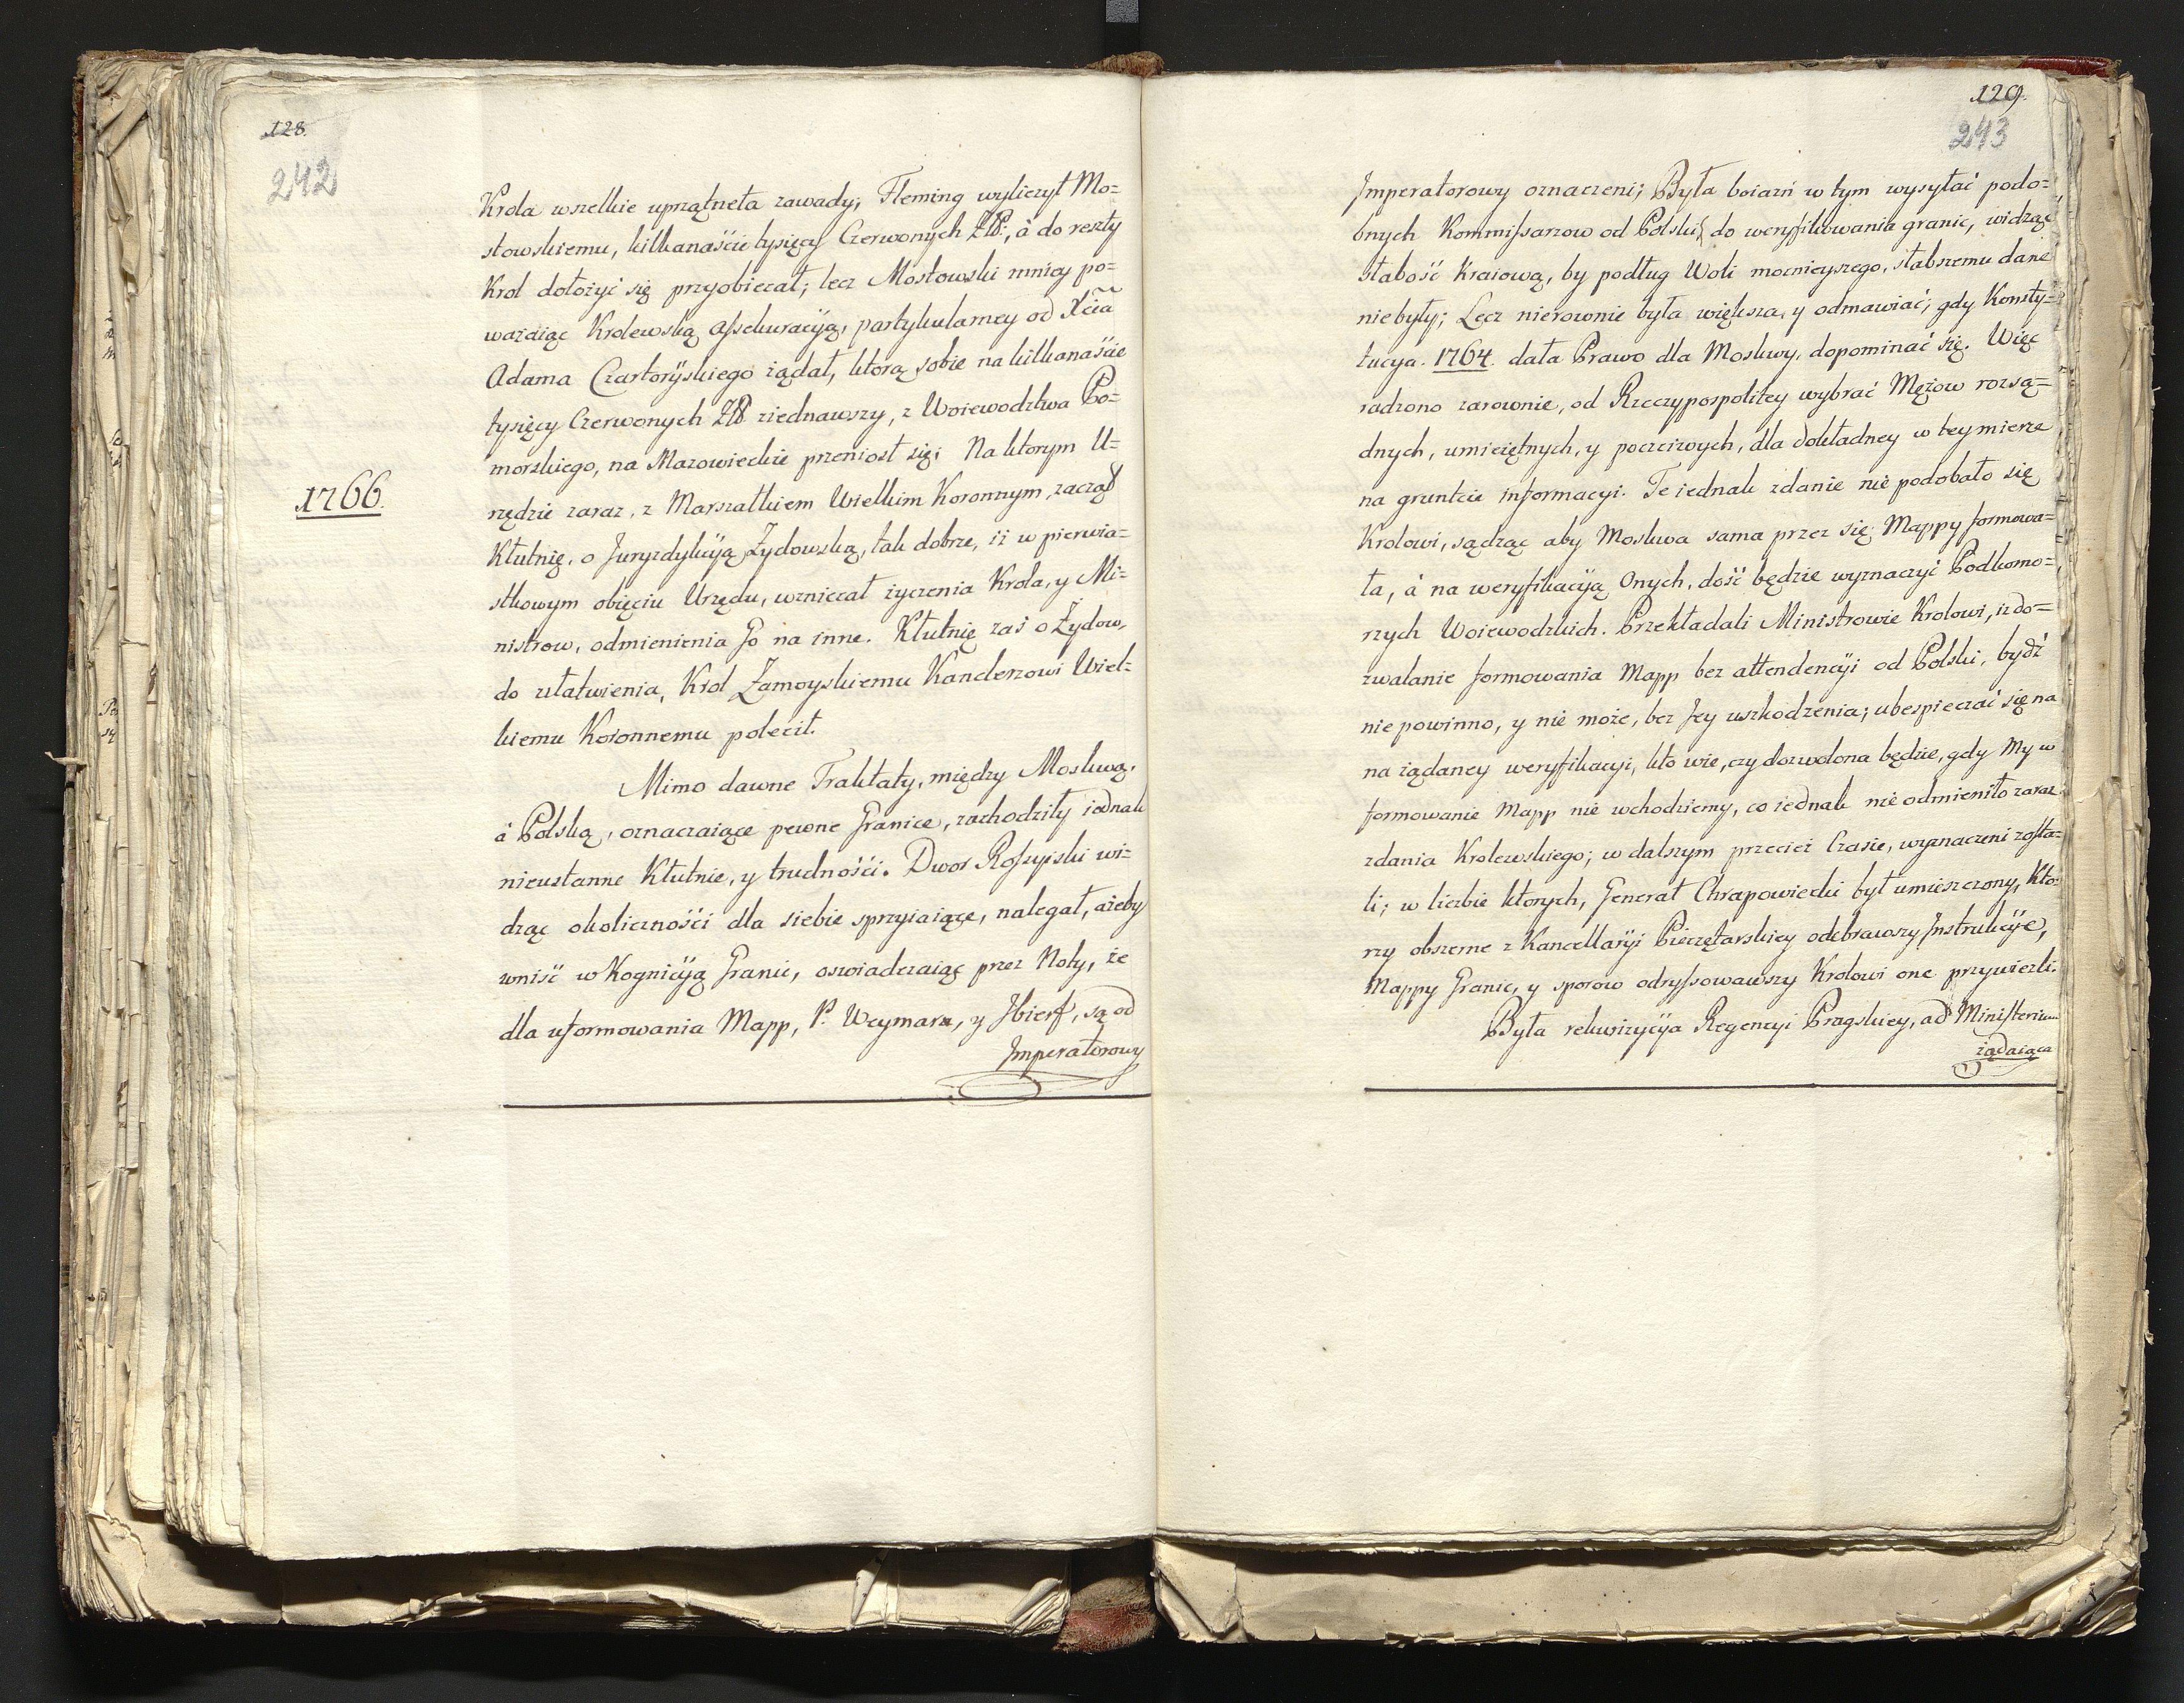 128.
242
Krola wszelkie uprzątneła zawady; Fleming wyliczył Mo=
stowskiemu, kilkanaście tysięcy Czerwonych Złł:, à do reszty
Krol dołożyć się przyobiecał; lecz Mostowski mniey po=
ważaiąc Krolewską Assekuracyją, partykularney od Xcia
Adama Czartoryskiego żądał, ktorą sobie na kilkanaście
tysięcy Czerwonych Złł ziednawszy, z Woiewodztwa Po=
morskiego, na Mazowieckie przeniosł się; Na ktorym U=
rzędzie zaraz, z Marszałkiem Wielkim Koronnym, zaczął
1766.
Kłutnię, o Juryzdykcyją Żydowską, tak dobrze, iż w pierwia=
stkowym obięciu Urzędu, wzniecał życzenia Krola, y Mi=
nistrow, odmienienia Go na inne. Kłutnię zaś o Żydow,
do ułatwienia, Krol Zamoyskiemu Kanclerzowi Wiel=
kiemu Koronnemu polecił.
Mimo dawne Traktaty, między Moskwą,
à Polską, oznaczaiące pewne Granice, zachodziły iednak
nieustanne Kłutnie, y trudności. Dwor Rossyiski wi=
dząc okoliczności dla siebie sprzyiaiące, nalegał, ażeby
wniść w Kognicyją Granic, oswiadczaiąc przez Noty, że
dla uformowania Mapp, P. Weymarn, y Jbierf, są od
Imperatorowy
129.
243
Imperatorowy oznaczeni; Była boiazń w tym wysyłać podo=
bnych Kommissarzow od Polski, do weryfikowania granic, widząc
słabość Kraiową, by podług Woli mocnieyszego, słabszemu dane
niebyły; Lecz nierownie była większa, y odmawiać, gdy Konsty=
tucya. 1764. dała Prawo dla Moskwy, dopominać się. Więc
radzono zarownie, od Rzeczypospolitey wybrać Mężow rozsą=
dnych, umieiętnych, y poczciwych, dla dokładney w tey mierze
na gruncie informacyi. Te iednak zdanie nie podobało się
Krolowi, sądząc aby Moskwa sama przez się Mappy formowa=
ła, à na weryfikacyją Onych, dość będzie wyznaczyć Podkomo=
rzych Woiewodzkich. Przekładali Ministrowie Krolowi, iż do=
zwalanie formowania Mapp bez attendencyi od Polski, bydź
nie powinno, y nie może, bez Jey uszkodzenia; ubespieczać się na
na żądaney weryfikacyi, kto wie, czy dozwolona będzie, gdy My w
formowanie Mapp nie wchodziemy, co iednak nie odmieniło zaraz
zdania Krolewskiego; w dalszym przecież Czasie, wyznaczeni zosta=
li; w liczbie ktorych, Generał Chrapowiecki był umieszczony, Kto=
rzy obszerne z Kancellaryi Pieczętarskiey odebrawszy Instrukcyje,
Mappy Granic, y sporow odryssowawszy Krolowi one przywiezli.
Była rekwizycyja Regencyi Pragskiey, ad Ministerium
żądaiąca